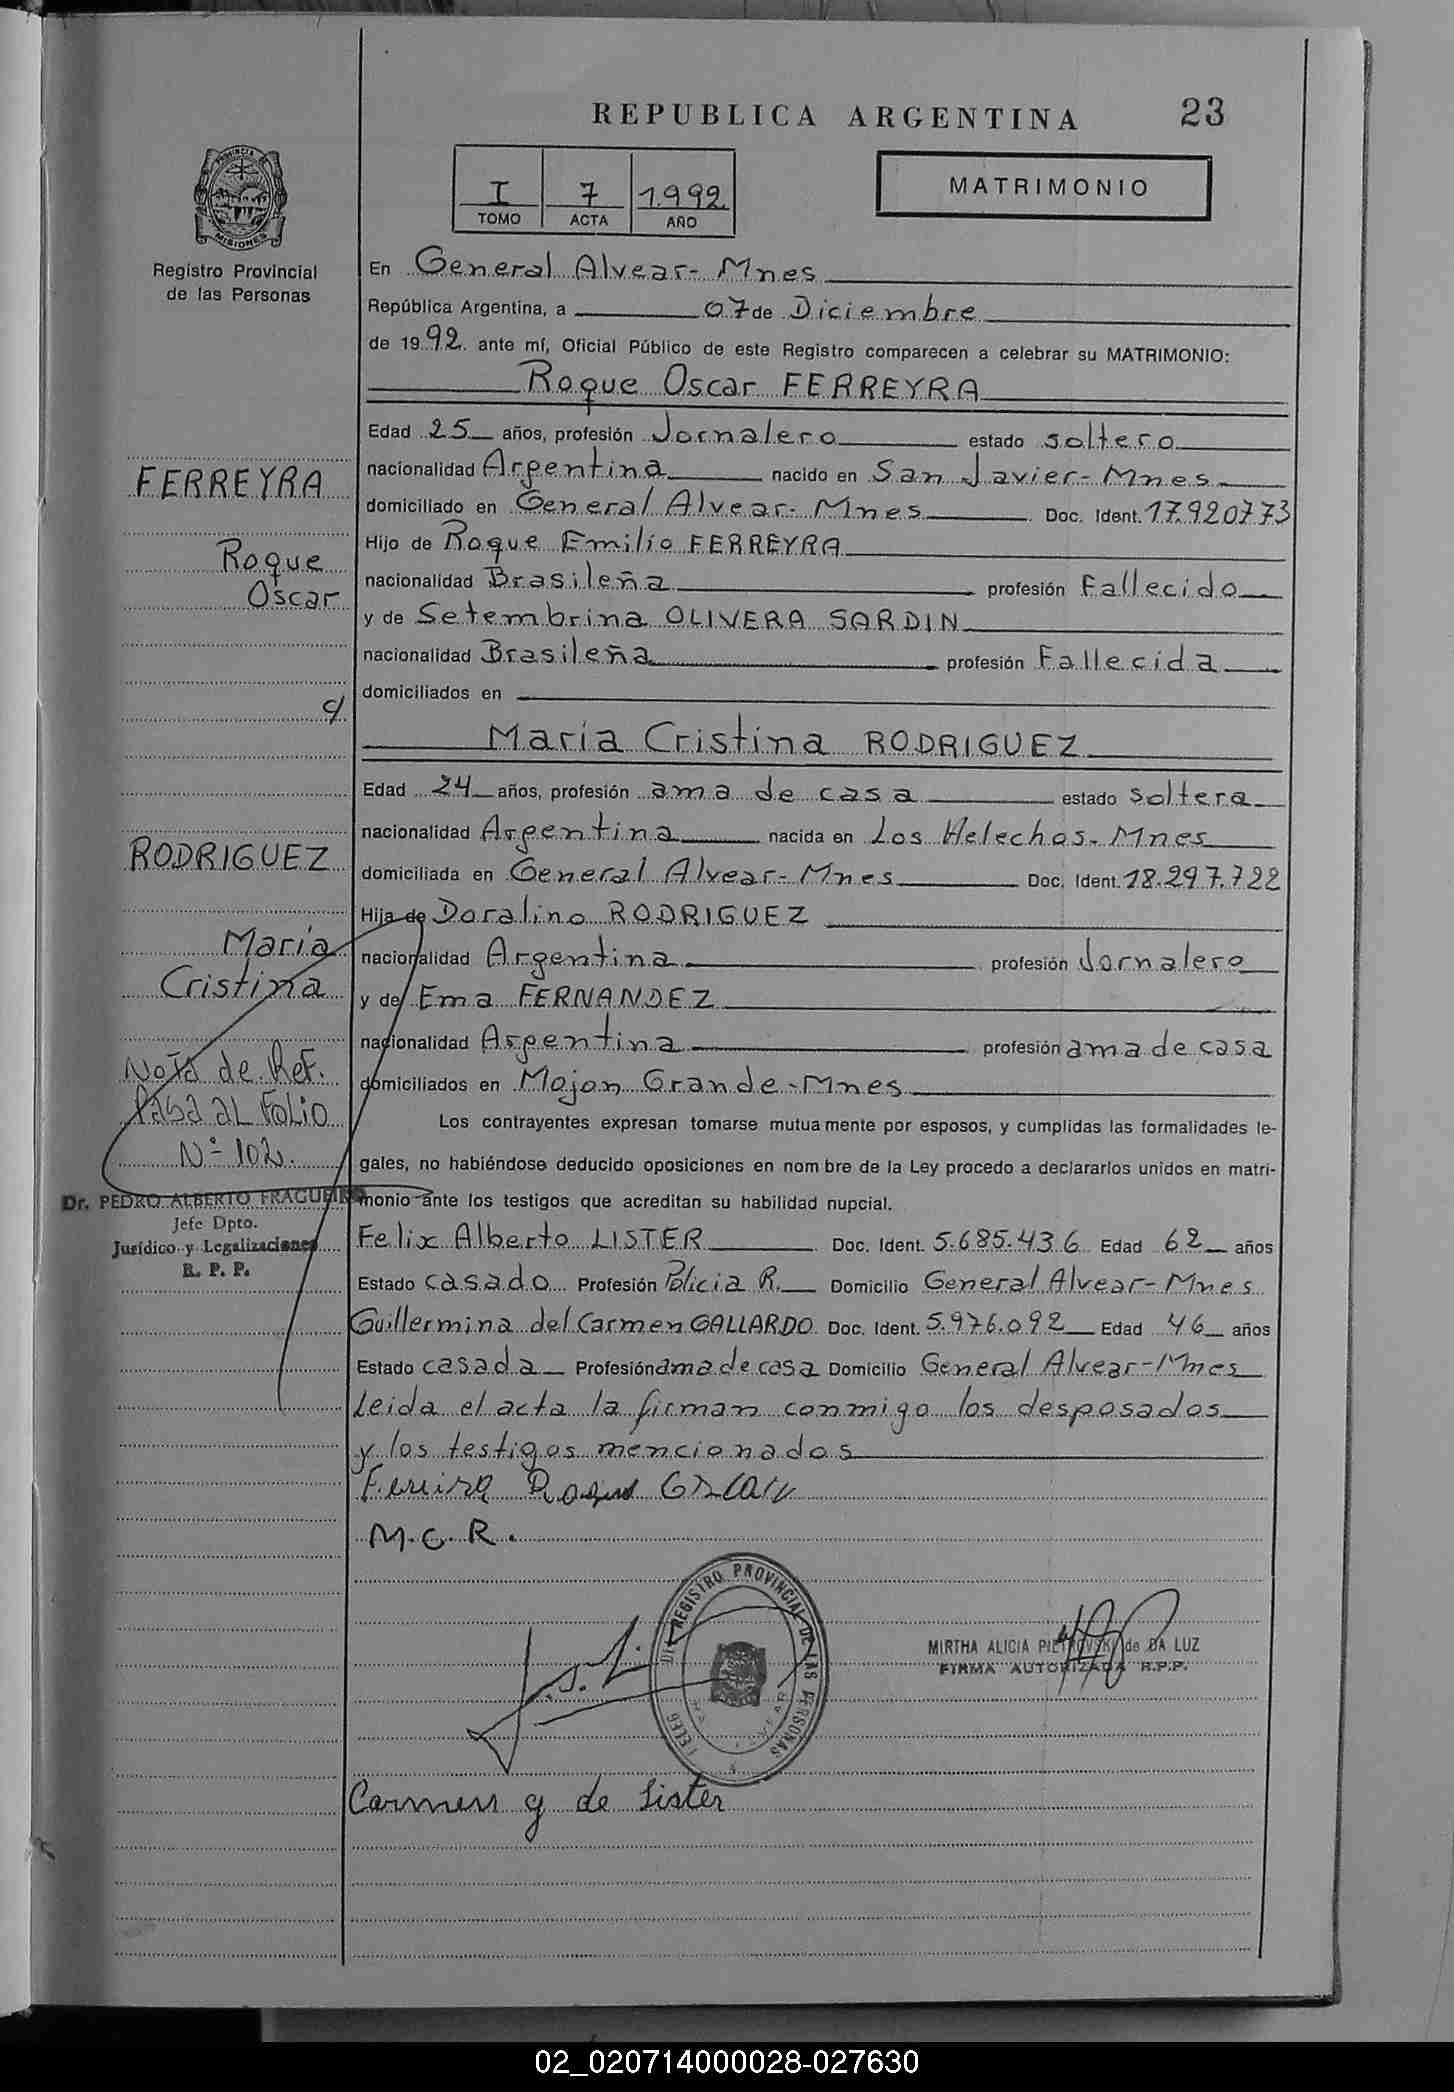 REPUBLICA ARGENTINA 23
PROVINCIA DE
MISIONES
Registro Provincial
de las Personas
I 7 1.992
TOMO ACTA AÑO
MATRIMONIO
En General Alvear- Mnes
República Argentina, a 07 de Diciembre
de 1992. ante mí, Oficial Público de este Registro comparecen a celebrar su MATRIMONIO:
Roque Oscar FERREYRA
Edad 25 años, profesión Jornalero estado soltero
nacionalidad Argentina nacido en San Javier- Mnes
domiciliado en General Alvear- Mnes Doc. Ident. 17.920773
Hijo de Roque Emilio FERREYRA
nacionalidad Brasileña profesión Fallecido
y de Setembrina OLIVERA SARDIN
nacionalidad Brasileña profesión Fallecida
domiciliados en
Maria Cristina RODRIGUEZ
Edad 24 años, profesión ama de casa estado soltera
nacionalidad Argentina nacida en Los Helechos- Mnes
domiciliada en General Alvear- Mnes Doc. Ident. 18.297.722
Hija de Doralino RODRIGUEZ
nacionalidad Argentina profesión Jornalero
y de Ema FERNANDEZ
nacionalidad Argentina profesión ama de casa
domiciliados en Mojon Grande-Mnes
Los contrayentes expresan tomarse mutuamente por esposos, y cumplidas las formalidades le-
gales, no habiéndose deducido oposiciones en nombre de la Ley procedo a declararlos unidos en matri-
monio ante los testigos que acreditan su habilidad nupcial.
Felix Alberto LISTER Doc. Ident. 5.685.436 Edad 62 años
Estado casado Profesión Policia R. Domicilio General Alvear-Mnes
Guillermina del Carmen GALLARDO Doc. Ident. 5.976.092 Edad 46 años
Estado casada Profesión ama de casa Domicilio General Alvear-Mnes
Leida el acta la firman conmigo los desposados
y los testigos mencionados
FERREYRA
Roque
Oscar
c/
RODRIGUEZ
Maria
Cristina
Nota de Ref.
Pasa al Folio
Nº 102.
Dr. PEDRO ALBERTO FRAGUEIRO
Jefe Dpto.
Jurídico y Legalizaciones
R. P. P.
Ferreira Roque Oscar
M.C.R.
REGISTRO PROVINCIAL DE LAS PERSONAS
MIRTHA ALICIA PIETROVSKI de DA LUZ
FIRMA AUTORIZADA R.P.P.
Carmen G de Lister
02_020714000028-027630